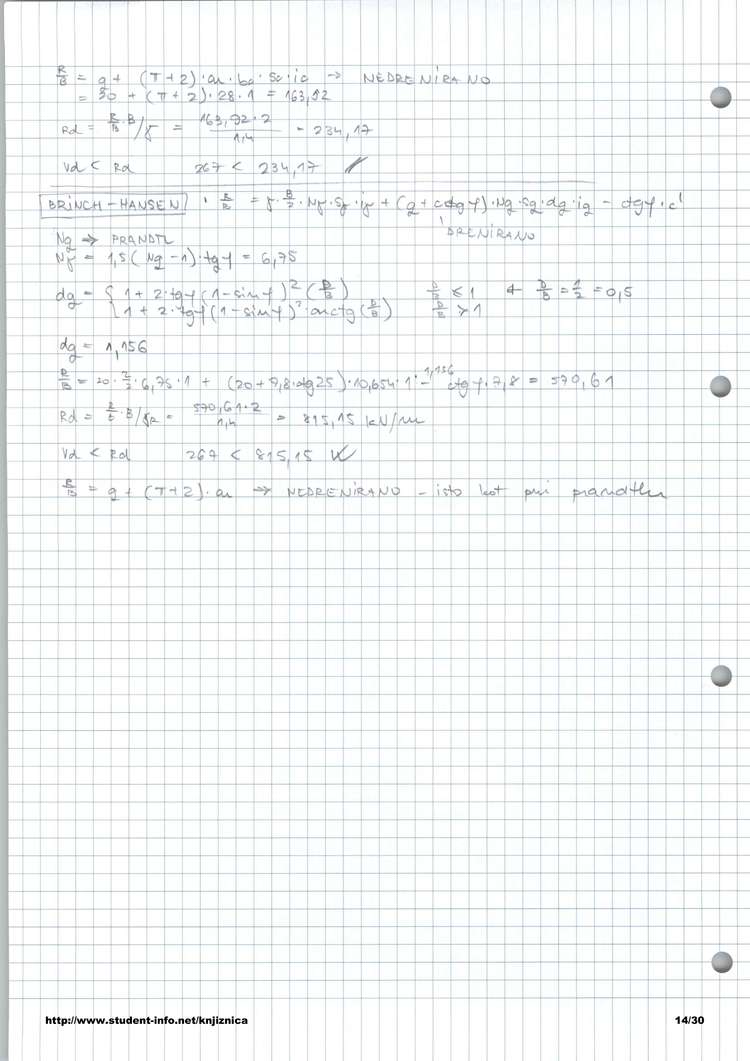 R/B = q + (π+2)·cu·bc·sc·ic → NEDRENIRANO
= 20 + (π+2)·28·1 = 163,92
Rd = R/B·B/γ = 163,92·2 / 1,4 = 234,17
Vd < Rd 267 < 234,17
BRINCH-HANSEN R/B = γ·B/2·Nγ·sγ·iγ + (q + c'ctgφ)·Nq·sq·dq·iq - ctgφ·c'
DRENIRANO
Nq → PRANDTL
Nγ = 1,5(Nq-1)·tgφ = 6,75
dq = { 1 + 2·tgφ(1-sinφ)² (D/B) D/B ≤ 1 ← D/B = 1/2 = 0,5
{ 1 + 2·tgφ(1-sinφ)²·arctg(D/B) D/B > 1
dq = 1,156
R/B = 20·2/2·6,75·1 + (20+7,8·ctg25)·10,654·1·1,156 - ctgφ·7,8 = 570,61
Rd = R/B·B/γR = 570,61·2 / 1,4 = 815,15 kN/m
Vd < Rd 267 < 815,15
R/B = q + (π+2)·cu → NEDRENIRANO - isto kot pri prandtlu
http://www.student-info.net/knjiznica 14/30